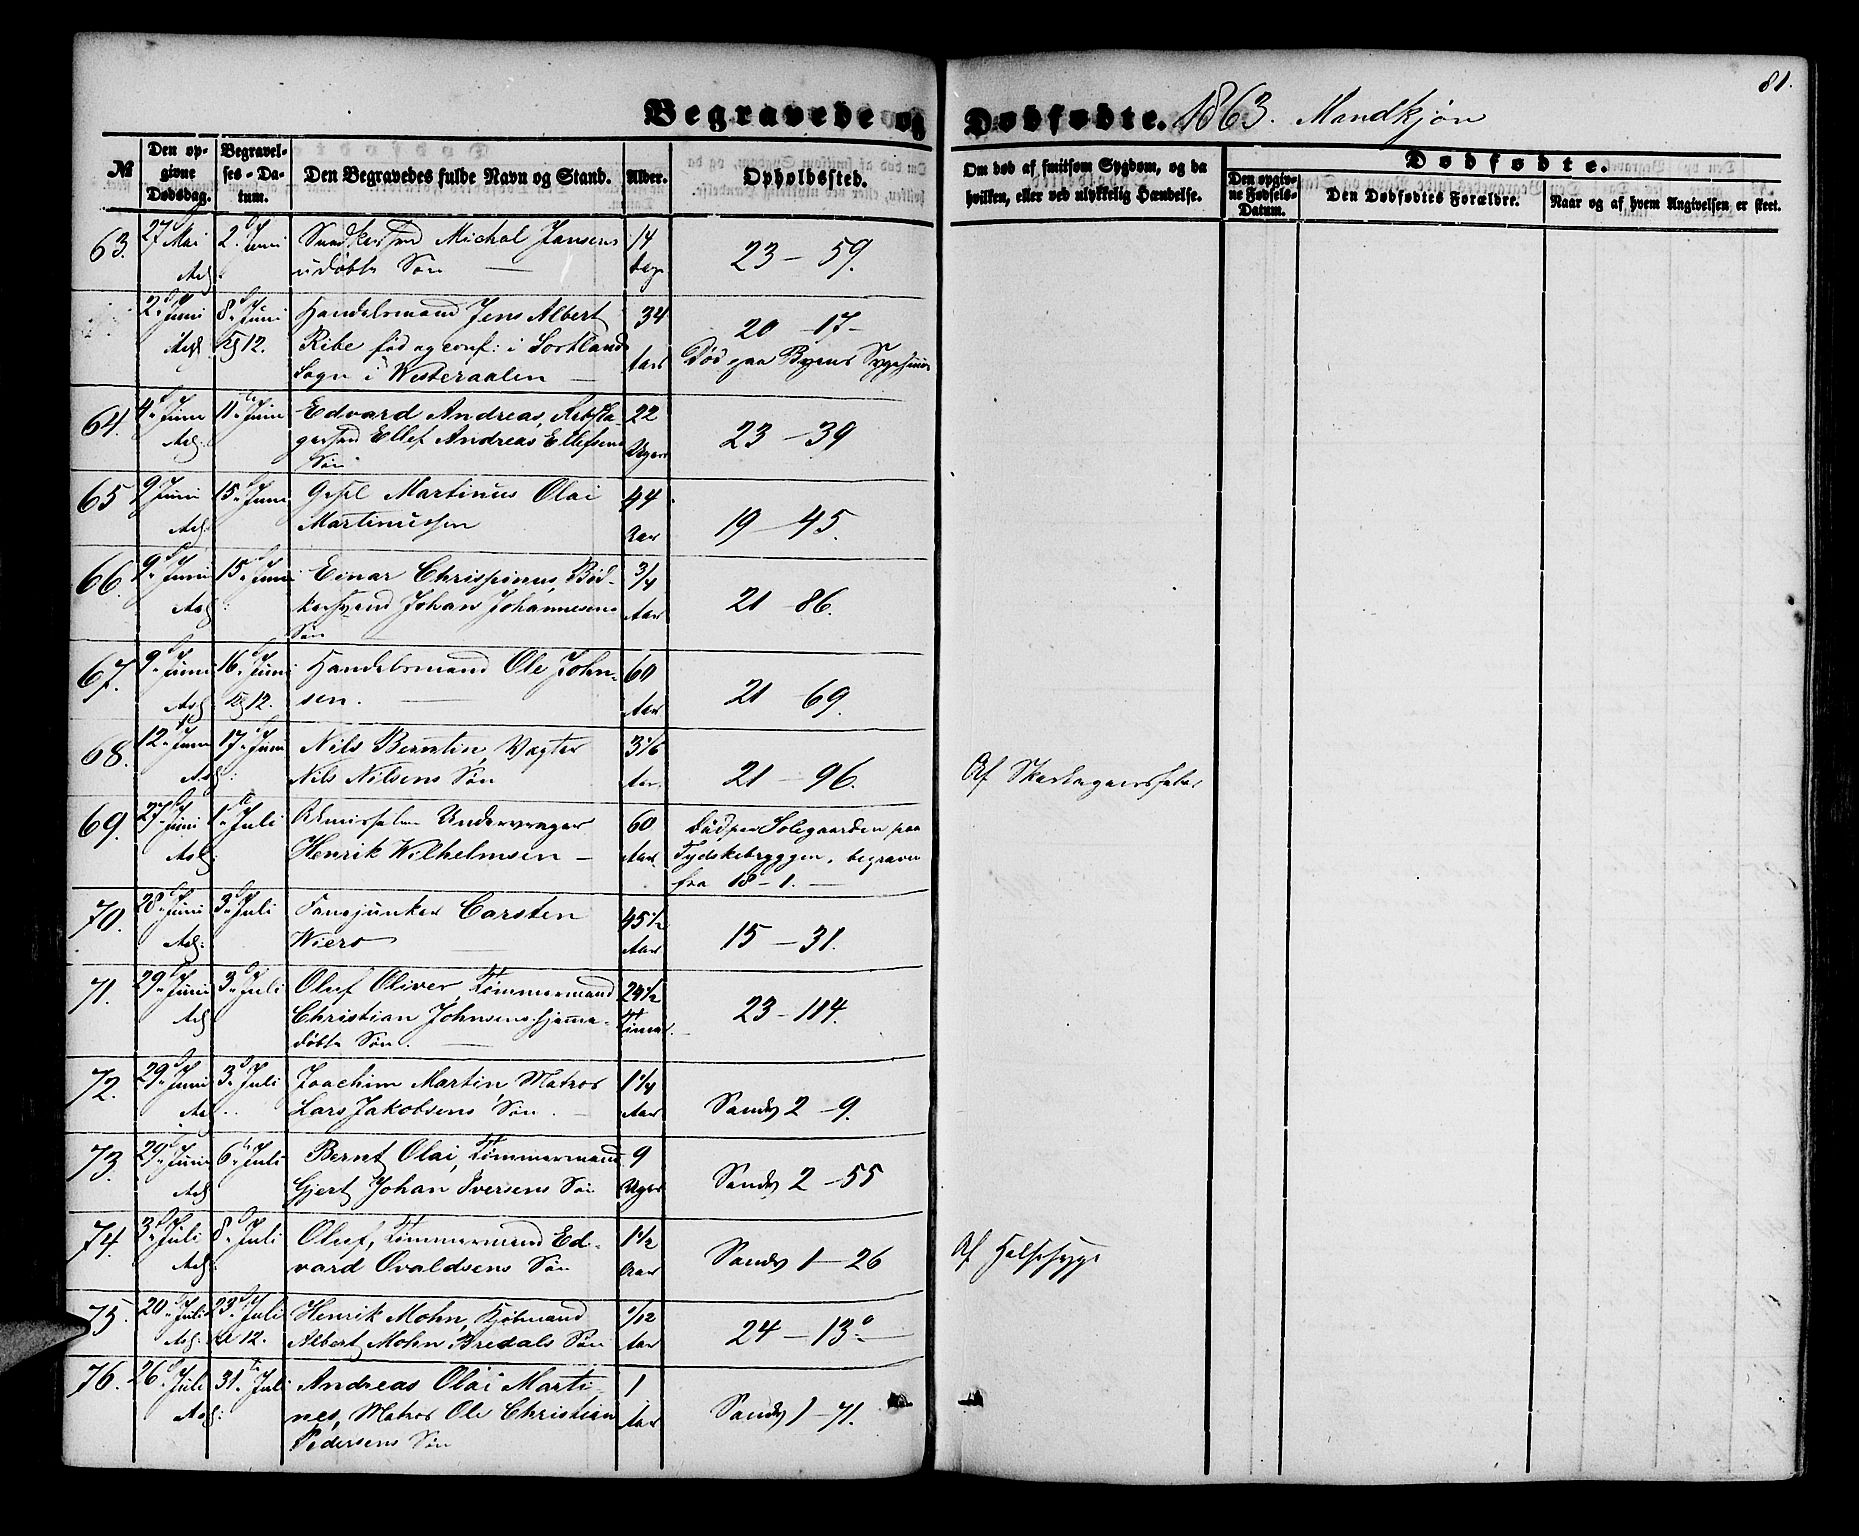 81.
Begravede og Dødfødte. 1863. Mandkjøn
№ Den opgivne Dødsdag. Begravelses-Datum. Den Begravedes fulde Navn og Stand. Alder. Opholdssted. Om død af smitsom Sygdom, og da hvilken, eller ved ulykkelig Hændelse. Dødfødte.
Den opgivne Fødsels-Datum. Den Dødfødtes Forældre. Naar og af hvem Angivelsen er skeet.
63. 27 Mai 2 Juni Michal Jansens 14
udøbte Søn — Dage 23 – 59.
2 Juni 8 Juni Handelsmand Jens Albert 34
Kl 12. Ribe fød og conf: i Sortland Aar 20 – 17 –
Sogn i Westeraalen — Død paa Byens Sygehuus
64. 4 Juni 11 Juni Edvard Andreas, Rebsla- 22
gersvend Ellef Andreas Ellefsens Uger 23 – 39
Søn
65 9 Juni 15 Juni Martinus Olai 44
Martinussen Aar 19 – 45.
66. 9 Juni 15 Juni Einar Chrispinus, Bød- 3/4
kersvend Johan Johannesens Aar 21 – 86.
Søn
67. 9 Juni 16 Juni Handelsmand Ole John- 60
Kl 12. sen. — Aar 21 – 69.
68. 12 Juni 17 Juni Nils Berntin, Vægter 3 1/6
Nils Nilsens Søn Aar 21 – 96. Af Skarlagensfeber
69. 27 Juni 1 Juli Undervrager 60 Død paa Solegaarden paa
Henrik Wilhelmsen — Aar. Tydskebryggen, begraven
fra 18 – 1. —
70. 28 Juni 3 Juli Fanejunker Carsten 45 1/2
Wiero Aar 15 – 31.
71. 29 Juni 3 Juli Oluf Oliver, Timmermand 24 1/2
Christian Johnsens hjemme- Timer. 23 – 114.
døbte Søn. —
72. 29 Juni 3 Juli Joachim Martin Matros 1 1/4
Lars Jakobsens Søn. — Aar Sandv 2 – 9.
73. 29 Juni 6 Juli Bernt Olai, Timmermand 9
Gjert Johan Iversens Søn Uger Sandv 2 – 55
74. 3 Juli 8 Juli Oluf, Timmermand Ed- 1 1/2
vard Ovaldsens Søn Aar Sandv 1 – 26 Af Halssyge
75. 20 Juli 23 Juli Henrik Mohn, Kjøbmand 1/12
Kl 12. Albert Mohn Bredals Søn Aar 24 – 13
76. 26 Juli 31. Juli Andreas Olai Marti- 1
nes, Matros Ole Christian Aar Sandv 1 – 71.
Pedersens Søn